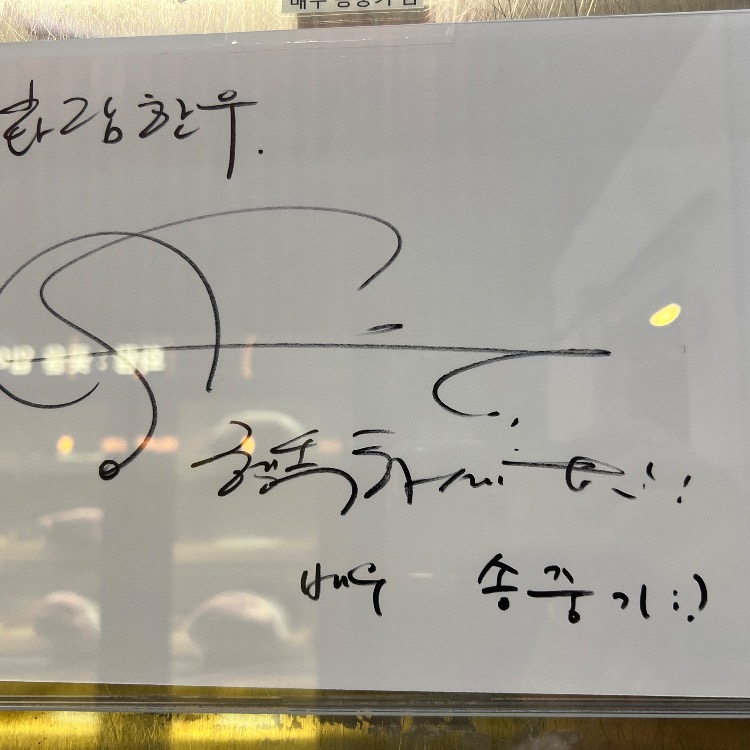 배우 송중기 님
화라남한우.
행복하세요!!
배우 송중기:)